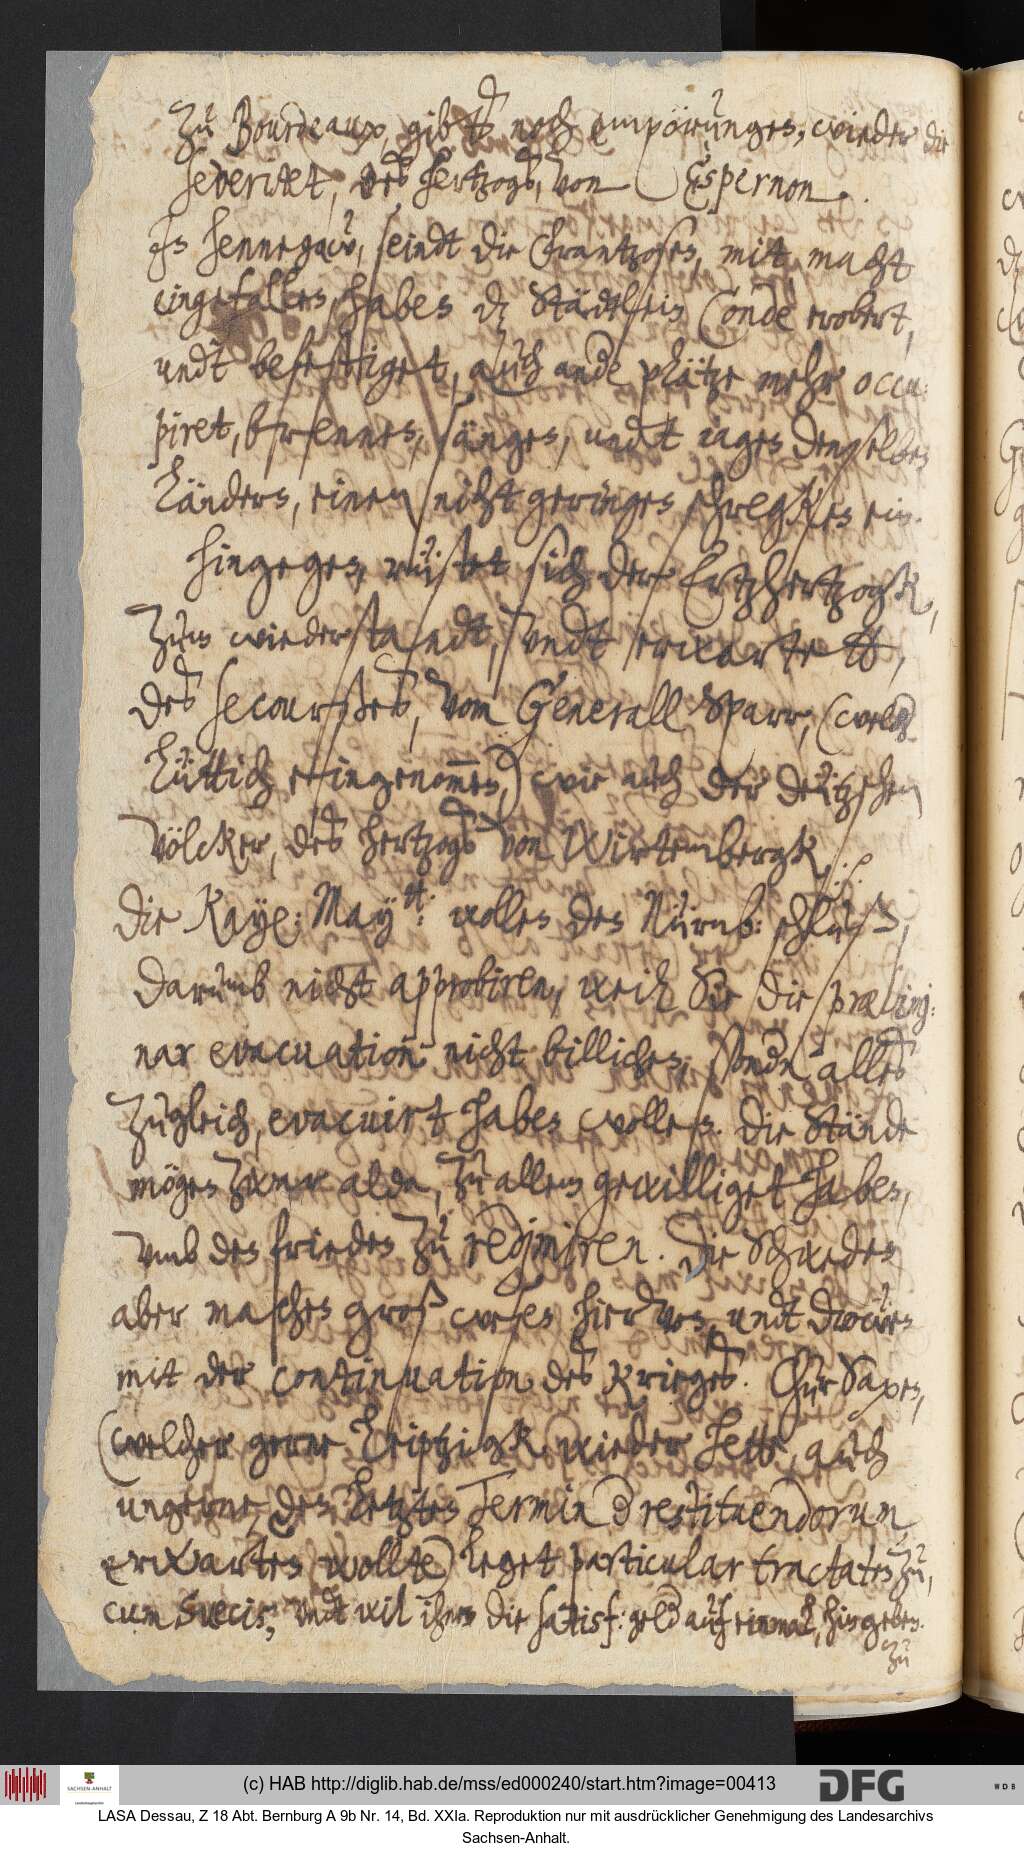 Zu Bourdeaux, gibts noch empörungen, wieder die
severitet, des Hertzogs, von Espernon.
Jns Hennegaw, seindt die Frantzosen, mit macht
eingefallen, haben dz Städtlein Condè erobert,
undt befestiget, auch ande plätze mehr occu-
piret, brennen, sängen, undt iagen denselben
Ländern, einen nicht geringen schregken ein.
Hingegen, rüstet sich der Ertzhertzogk,
zum wiederstandt, undt erwartett,
des secourßes, vom Generall Sparr, (welch
Lüttich eingenommen,) wie auch der deützschen
Völcker, des Hertzogs von Wirtembergk.
Die Kayß: Maytt: wollen den Nürnb: schluß,
darumb nicht approbiren, weil Sie die prælimi-
nar evacuation nicht billichen, sondn alles
zugleich, evacuirt haben wollen. Die Stände
mögen zwar alda, zu allem gewilliget haben,
umb den frieden zu redimiren. Die Schweden
aber machen groß wesen hiervon, undt dröwen
mit der continuation des Krieges. Chur Saxen,
(welcher gerne Leiptzigk wieder hette, auch
ungerne, den letzten Termin restituendorum
erwarten wollte) leget particular tractaten zu,
cum Svecis, undt wil ihnen die satisf: geld auf einmal, hingeben.
zu
(c) HAB http://diglib.hab.de/mss/ed000240/start.htm?image=00413
SACHSEN-ANHALT
DFG
WDB
LASA Dessau, Z 18 Abt. Bernburg A 9b Nr. 14, Bd. XXIa. Reproduktion nur mit ausdrücklicher Genehmigung des Landesarchivs
Sachsen-Anhalt.